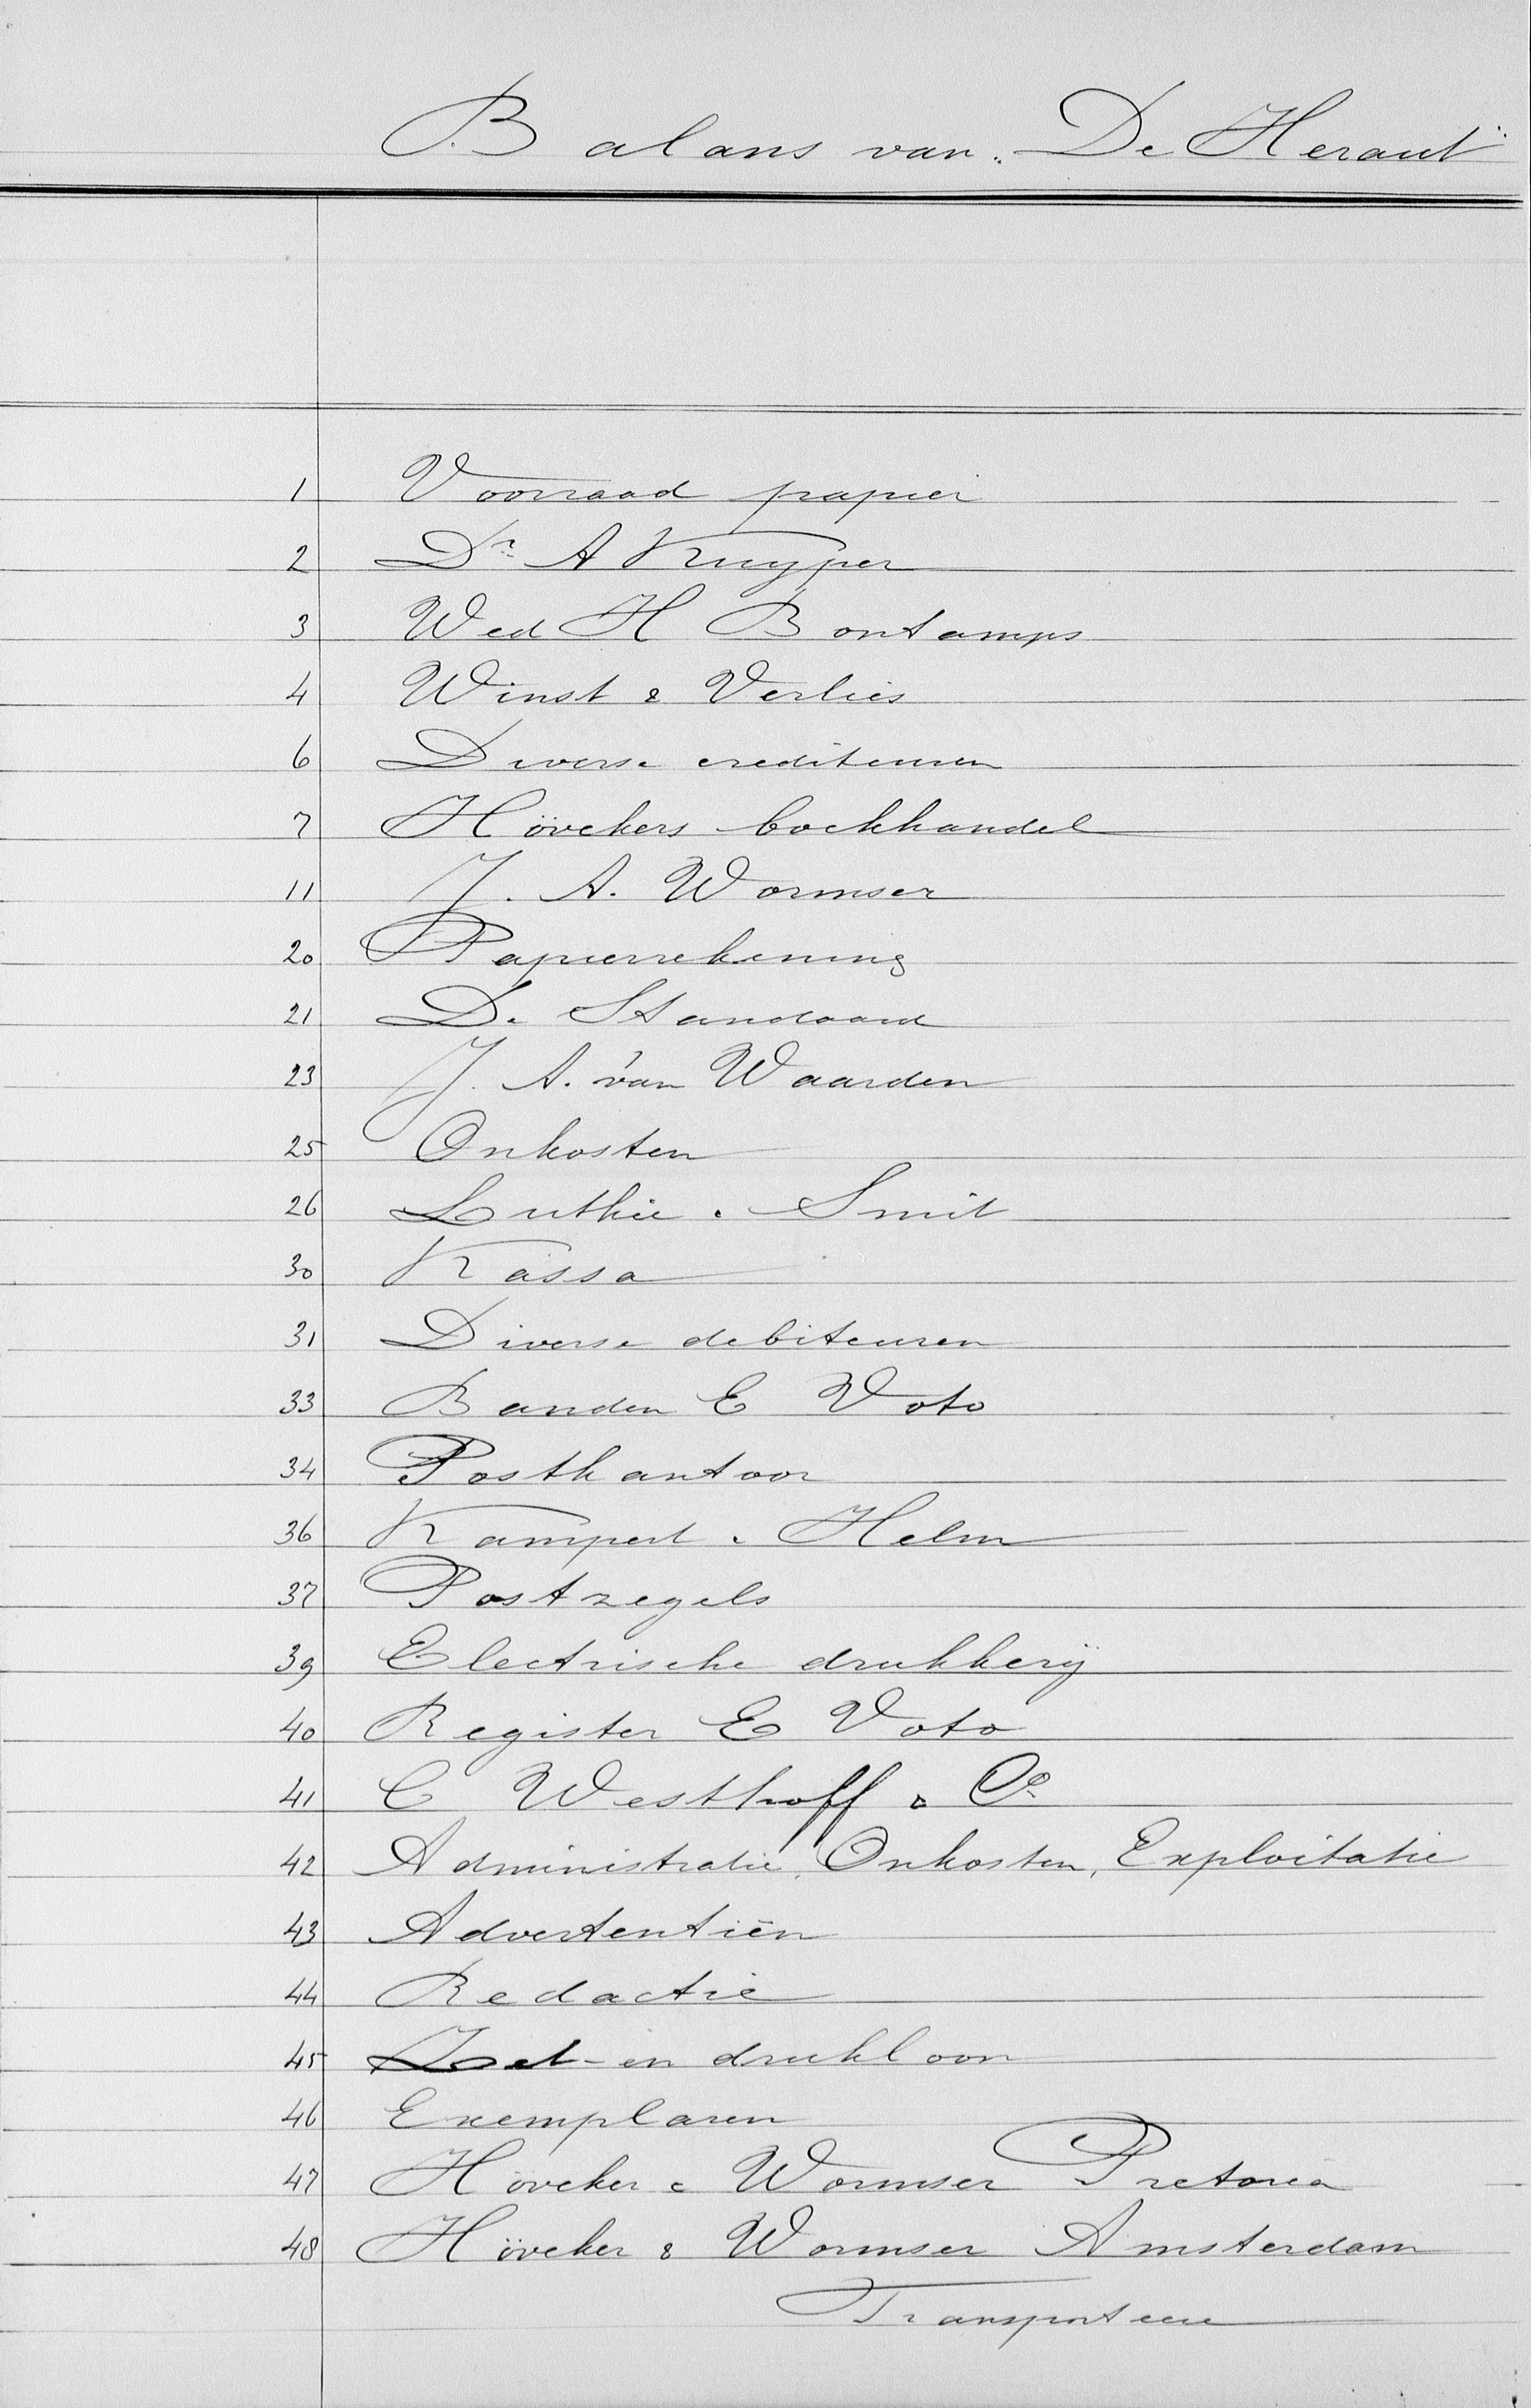 Balans van „De Heraut"
1 Voorraad papier
2 Dr. A Kuyper
3 Wed H Bontamps
4 Winst & Verlies
6 Diverse crediteuren
7 Hövekers boekhandel
11 J. A. Wormser
20 Papierrekening
21 De Standaard
23 J. A. van Waarden
25 Onkosten
26 Luthie & Smit
30 Kassa
31 Diverse debiteuren
33 Banden E Voto
34 Postkantoor
36 Kampert & Helm
37 Postzegels
39 Electrische drukkerij
40 Register E Voto
41 C Westhoff & Co
42 Administratie, Onkosten, Exploitatie
43 Advertentiën
44 Redactie
45 Zet- en drukloon
46 Exemplaren
47 Höveker & Wormser Pretoria
48 Höveker & Wormser Amsterdam
Transporteere